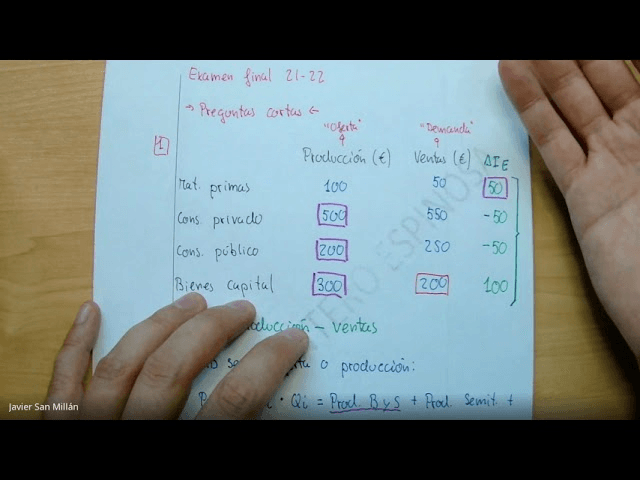 Examen final 21-22
→ Preguntas cortas ←
"Oferta" "Demanda"
1 Producción (€) Ventas (€) ΔIE
Mat. primas 100 50 50
Cons. privado 500 550 -50
Cons. público 200 250 -50
Bienes capital 300 200 100
TERO ESPINOSA
– ventas
o producción:
· Qi = Prod. B y S + Prod. Semit. +
Javier San Millán